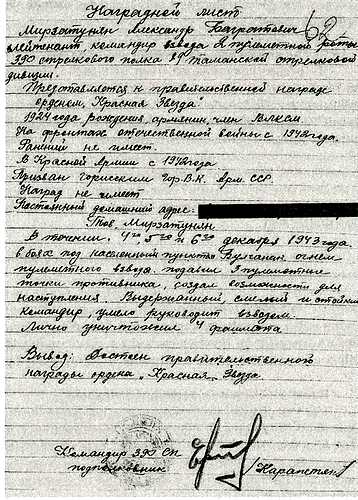 Наградной лист
62
Мирзатунян Александр Багратович
лейтенант командир взвода 2 пулеметной роты
390 стрелкового полка 89 Таманской стрелковой
дивизии.
Представляется к правительственной награде
орденом "Красная Звезда"
1924 года рождения, армянин, член ВЛКСМ
На фронтах отечественной войны с 1942 года.
Ранений не имеет.
В Красной Армии с 1942 года
Призван горисским Гор.В.К. Арм. ССР
Наград не имеет
Постоянный домашний адрес:
Тов. Мирзатунян
В течении 4го 5го и 6го декабря 1943 года
в боях под населенный пункта Булганак огнем
пулеметного взвода подавил 3 пулеметные
точки противника, создал возможности для
наступления. Выдержанный, смелый и стойкий
командир, умело руководит взводом.
Лично уничтожил 4 фашиста
Вывод: Достоен правительственного
награды ордена "Красная Звезда
Командир 390 СП
подполковник